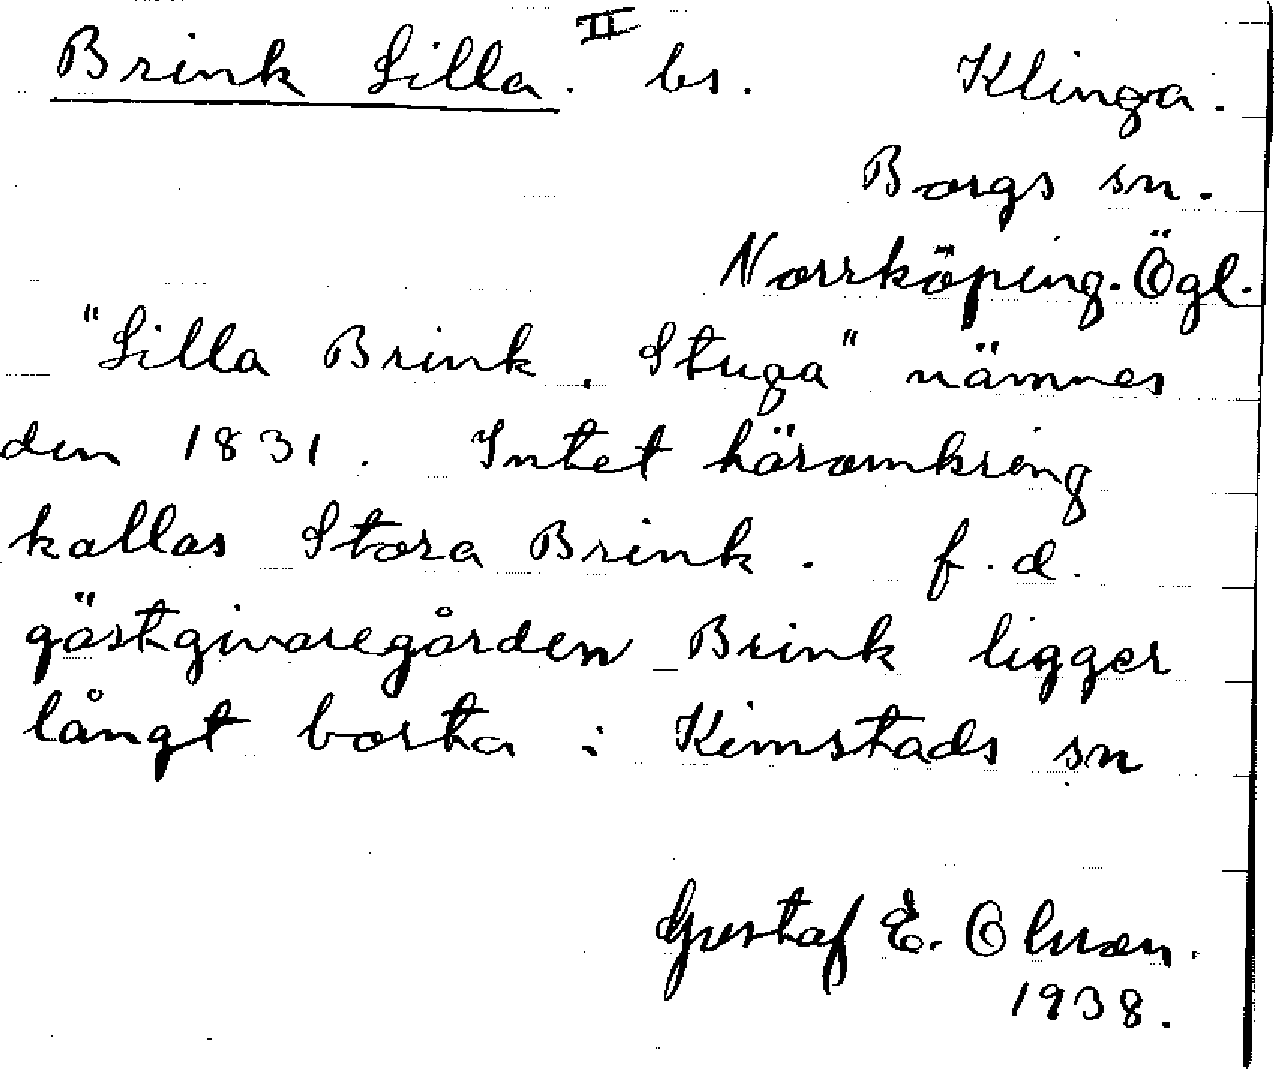 Brink Lilla. II bs. Klinga.
Borgs sn.
Norrköping. Ögl.
"Lilla Brink. Stuga" nämnes
den 1831. Intet häromkring
kallas Stora Brink. f.d.
gästgivaregården Brink ligger
långt borta i Kimstads sn
Gustaf E. Olsson.
1938.